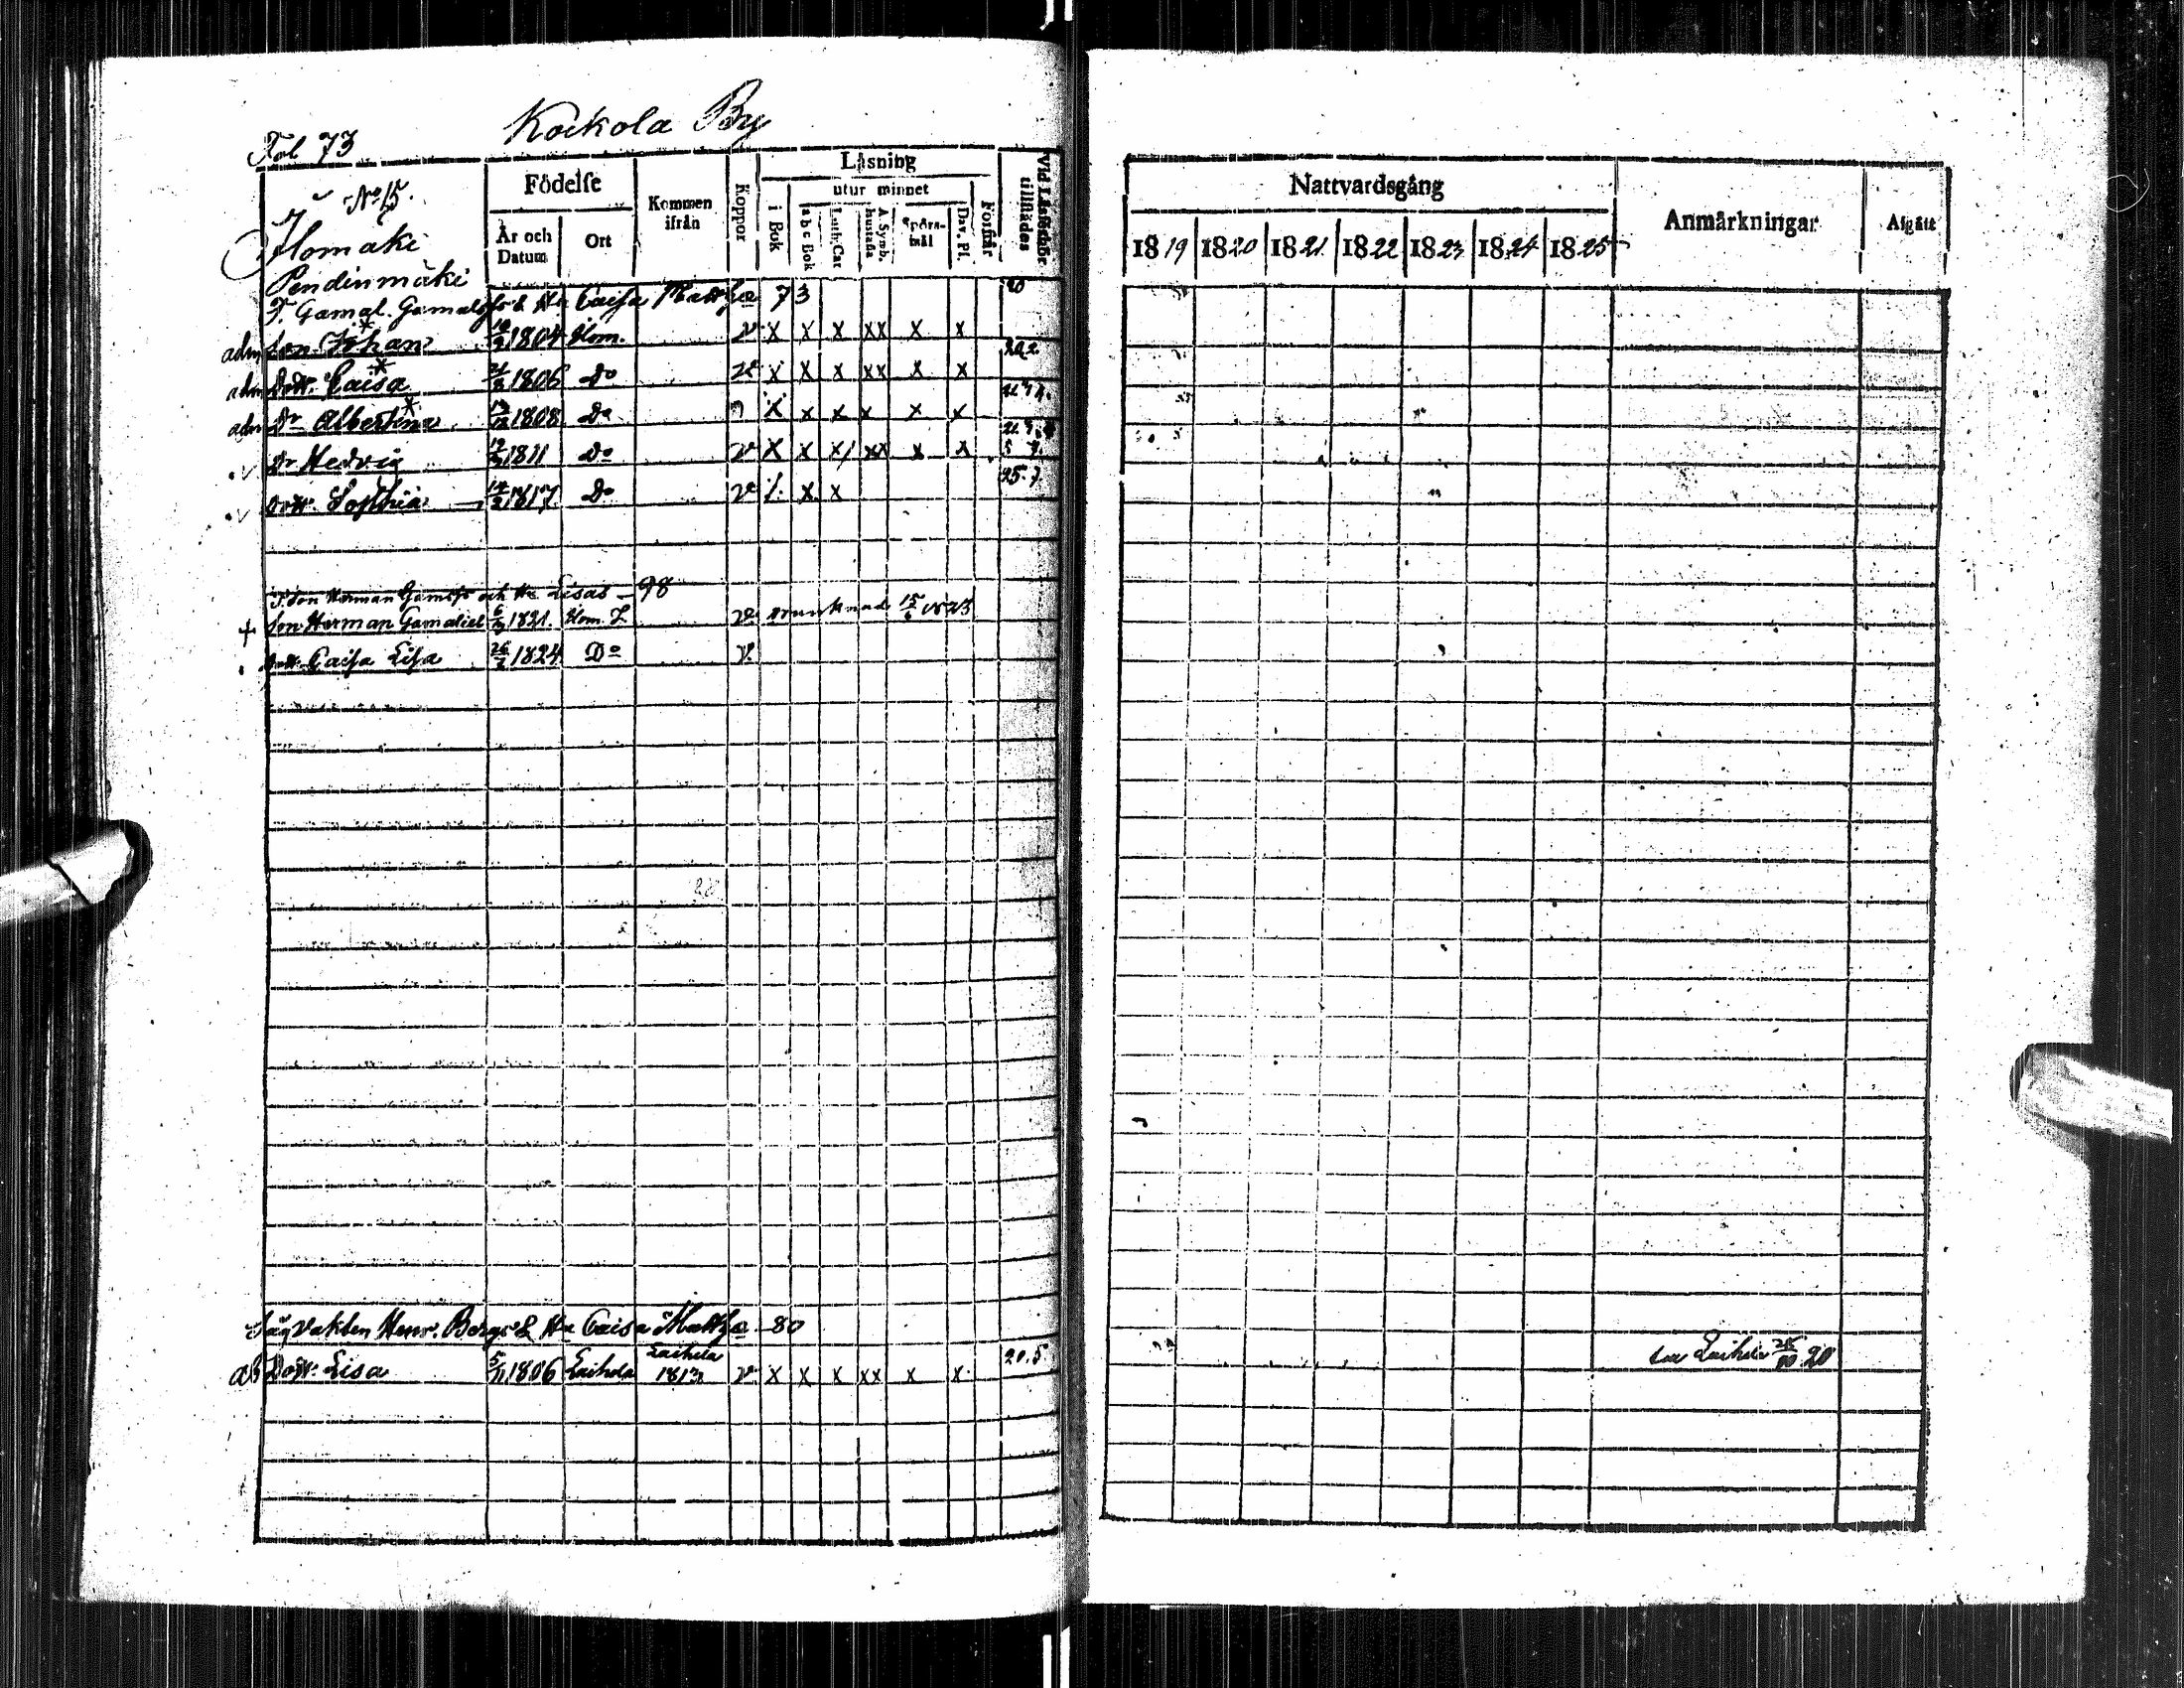 Kockola By
Fol 73
No 15.
Ilomäki
Pendinmäki
Födelse
År och Datum
Ort
Kommen ifrån
Koppor
Läsning
i Bok
utur minnet
a b c Bok
Luth. Cat
A. Symb. hustafla
Spörsmål
Dav. Pl.
Förstår
Vid Läsförhör tillstädes
F. Gamal. Gamalss & Hu Caisa Mattsa 73 20
adm Son Johan 1804 Ilom. v x x x xx x x 20.2
adm Dott. Caisa 1806 Do v x x x xx x x
adm Dr Albertina 1808 Do x x x x x x
Dr Hedvig 12/3 1811 Do v x x x/ xx x x
Dott. Sophia 14/2 1817 Do v /. x x 25.7
T. Son Herman Gamss och Hu Lisas - 98
+ Son Herman Gamaliel 1821. Ilom. v drunknad 15/6 1823
Dott. Caisa Lisa 26/7 1824 Do v.
Sågvakten Henr. Bergs & Hu Caisa Mattsa 80
afl Dott. Lisa 5/11 1806 Laihela Laihela 1813 v x x x xx x x 20.5
Nattvardsgång
1819 1820 1821 1822 1823 1824 1825
Anmärkningar
Afgått
Laihela 20